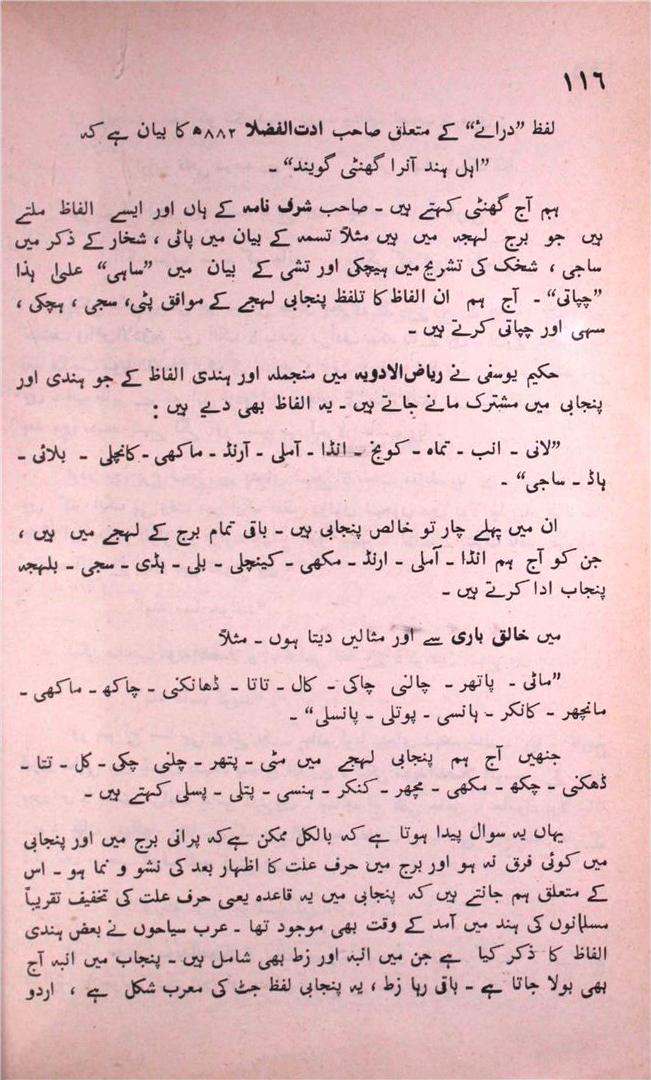 ١١٦
لفظ ”درائے“ کے متعلق صاحب ادت الفضلا ٨٨٢ھ کا بیان ہے کہ
”اہل ہند آنرا گھنٹی گویند“ ۔
ہم آج گھنٹی کہتے ہیں ۔ صاحب شرف نامہ کے ہاں اور ایسے الفاظ ملتے
ہیں جو برج لہجہ میں ہیں مثلاً تسمہ کے بیان میں پاٹی ، شخار کے ذکر میں
ساجی ، شخک کی تشریح میں ہیچکی اور تشی کے بیان میں ”ساہی“ علیٰ ہذا
”چپاتی“ ۔ آج ہم ان الفاظ کا تلفظ پنجابی لہجے کے موافق پٹی، سجی ، ہچکی ،
سہی اور چپاتی کرتے ہیں ۔
حکیم یوسفی نے ریاض الادویہ میں منجملہ اور ہندی الفاظ کے جو ہندی اور
پنجابی میں مشترک مانے جاتے ہیں ۔ یہ الفاظ بھی دیے ہیں :
”لانی ۔ انب ۔ تماہ ۔ کونج ۔ انڈا ۔ آملی ۔ آرنڈ ۔ ماکھی ۔ کانچلی ۔ بلائی ۔
ہاڈ ۔ ساجی“ ۔
ان میں پہلے چار تو خالص پنجابی ہیں ۔ باقی تمام برج کے لہجے میں ہیں ،
جن کو آج ہم انڈا ۔ آملی ۔ ارنڈ ۔ مکھی ۔ کینچلی ۔ بلی ۔ ہڈی ۔ سجی ۔ بلہجہ
پنجاب ادا کرتے ہیں ۔
میں خالق باری سے اور مثالیں دیتا ہوں ۔ مثلاً
”ماٹی ۔ پاتھر ۔ چالنی چاکی ۔ کال ۔ تاتا ۔ ڈھانکنی ۔ چاکھ ۔ ماکھی ۔
مانچھر ۔ کانکر ۔ ہانسی ۔ پوتلی ۔ پانسلی“ ۔
جنھیں آج ہم پنجابی لہجے میں مٹی ۔ پتھر ۔ چلنی چکی ۔ کل ۔ تتا ۔
ڈھکنی ۔ چکھ ۔ مکھی ۔ مچھر ۔ کنکر ۔ ہنسی ۔ پتلی ۔ پسلی کہتے ہیں ۔
یہاں یہ سوال پیدا ہوتا ہے کہ بالکل ممکن ہے کہ پرانی برج میں اور پنجابی
میں کوئی فرق نہ ہو اور برج میں حرف علت کا اظہار بعد کی نشو و نما ہو ۔ اس
کے متعلق ہم جانتے ہیں کہ پنجابی میں یہ قاعدہ یعی حرف علت کی تخفیف تقریباً
مسلمانوں کی ہند میں آمد کے وقت بھی موجود تھا ۔ عرب سیاحوں نے بعض ہندی
الفاظ کا ذکر کیا ہے جن میں انبہ اور زط بھی شامل ہیں ۔ پنجاب میں انبہ آج
بھی بولا جاتا ہے ۔ باقی رہا زط ، یہ پنجابی لفظ جٹ کی معرب شکل ہے ، اردو